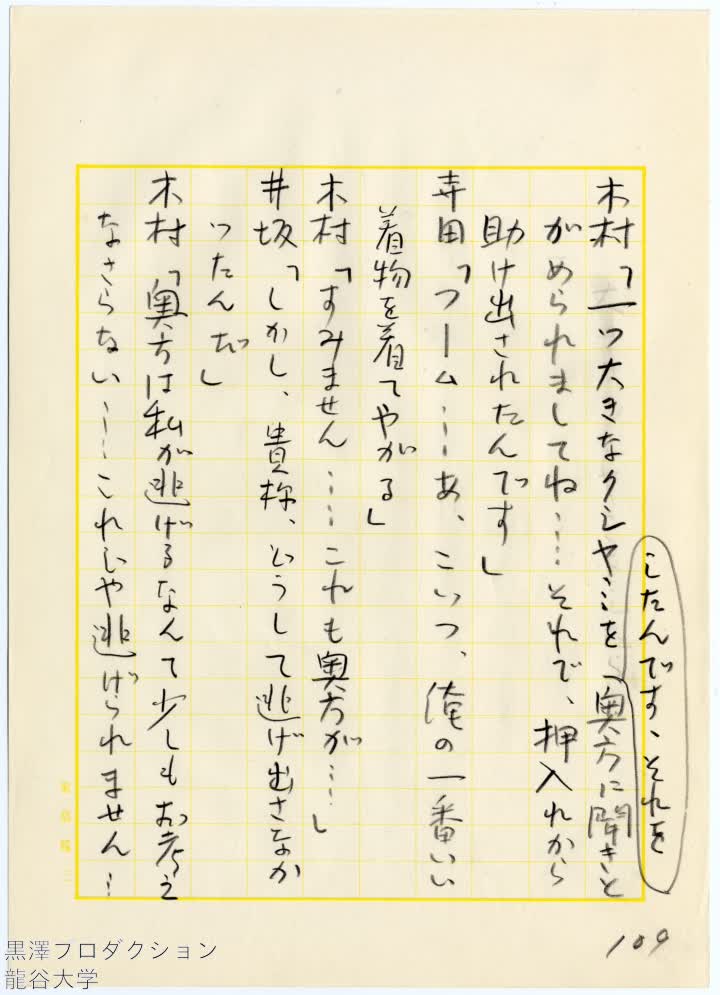 したんです、それを
木村「一ツ大きなクシヤミを「奥方に聞きと
がめられましてね……それで、押入れから
助け出されたんです」
寺田「フーム……あ、こいつ、俺の一番いい
着物を着てやがる」
木村「すみません……これも奥方が……」
井坂「しかし、貴様、どうして逃げ出さなか
つたんだ」
木村「奥方は私が逃げるなんて少しもお考え
なさらない……これじや逃げられません…
109
黒澤プロダクション
龍谷大学